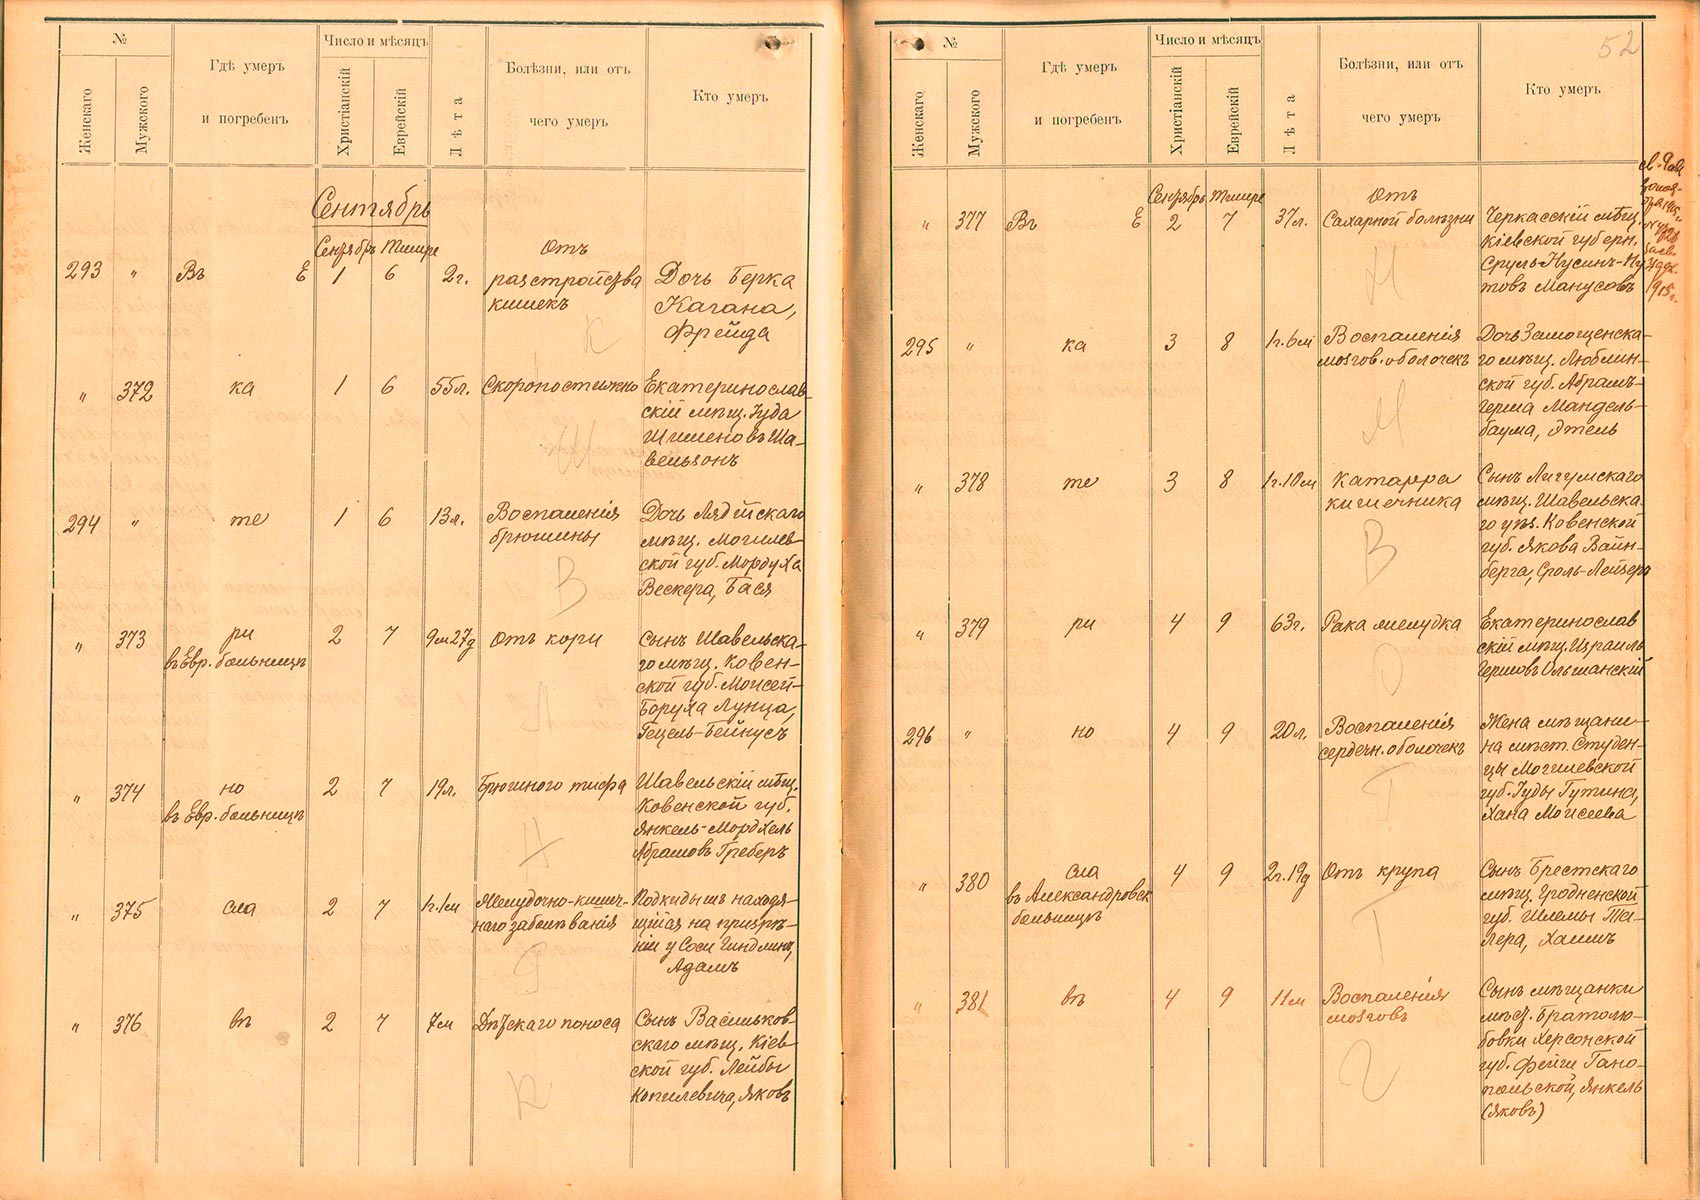 №
Женскаго
Мужского
Гдѣ умеръ
и погребенъ
Число и мѣсяцъ
Христіанскій
Еврейскій
Лѣта
Болѣзни, или отъ
чего умеръ
Кто умеръ
Сентябрь
Сентябрь Тишре
293 „ Въ Е 1 6 2г.
Отъ
разстройства
кишекъ
Дочь Берка
Кагана,
Фрейда
„ 372 ка 1 6 55л. Скоропостижно
Екатеринослав-
скій мѣщ. Іуда
Шименовъ Ша-
вельзонъ
294 „ те 1 6 13л.
Воспаленія
брюшины
Дочь Лядскаго
мѣщ. Могилев-
ской губ. Мордуха
Вескера, Бася
„ 373 ри
въ Евр. больницѣ
2 7 9м27д Отъ кори
Сынъ Шавельска-
го мѣщ. Ковен-
ской губ. Моисей-
Боруха Лунца,
Гецель-Бейнусъ
„ 374 но
въ Евр. больницѣ
2 7 19л. Брюшного тифа
Шавельскій мѣщ.
Ковенской губ.
Янкель-Мордхель
Абрамовъ Греберъ
„ 375 сла 2 7 1г.1м
Желудочно-кишеч-
наго заболѣванія
Подкидышъ находя-
щійся на призрѣ-
ніи у Соси Гиндлинъ,
Адамъ
„ 376 въ 2 7 7м Дѣтскаго поноса
Сынъ Васильков-
скаго мѣщ. Кіев-
ской губ. Лейбы
Копилевича, Яковъ
№
52
Женскаго
Мужского
Гдѣ умеръ
и погребенъ
Число и мѣсяцъ
Христіанскій
Еврейскій
Лѣта
Болѣзни, или отъ
чего умеръ
Кто умеръ
Сентябрь Тишре
„ 377 Въ Е 2 7 37л.
Отъ
Сахарной болѣзни
Черкасскій мѣщ.
Кіевской губерн.
Сруль-Нусинъ-Ну-
товъ Манусовъ
1915г.
295 „ ка 3 8 1г.6м
Воспаленія
мозгов. оболочекъ
Дочь Замощенска-
го мѣщ. Люблин-
ской губ. Абрамъ-
Герша Мандель-
баума, Этель
„ 378 те 3 8 1г.10м
Катарра
кишечника
Сынъ Лигумскаго
мѣщ. Шавельска-
го уѣз. Ковенской
губ. Якова Вайн-
берга, Сроль-Лейзеръ
„ 379 ри 4 9 63г. Рака желудка
Екатеринослав
скій мѣщ. Израиль
Гершовъ Ольшанскій
296 „ но 4 9 20л.
Воспаленія
сердечн. оболочекъ
Жена мѣщани-
на мѣст. Студен-
цы Могилевской
губ. Іуды Гутина,
Хана Моисеева
„ 380 сла
въ Александровск
больницѣ
4 9 2г.19д Отъ крупа
Сынъ Брестскаго
мѣщ. Гродненской
губ. Шлемы Те-
лера, Хаимъ
„ 381 въ 4 9 11м
Воспаленія
мозговъ
Сынъ мѣщанки
мѣст. Братолю-
бовки Херсонской
губ. Фейги Гано-
польской, Янкель
(Яковъ)